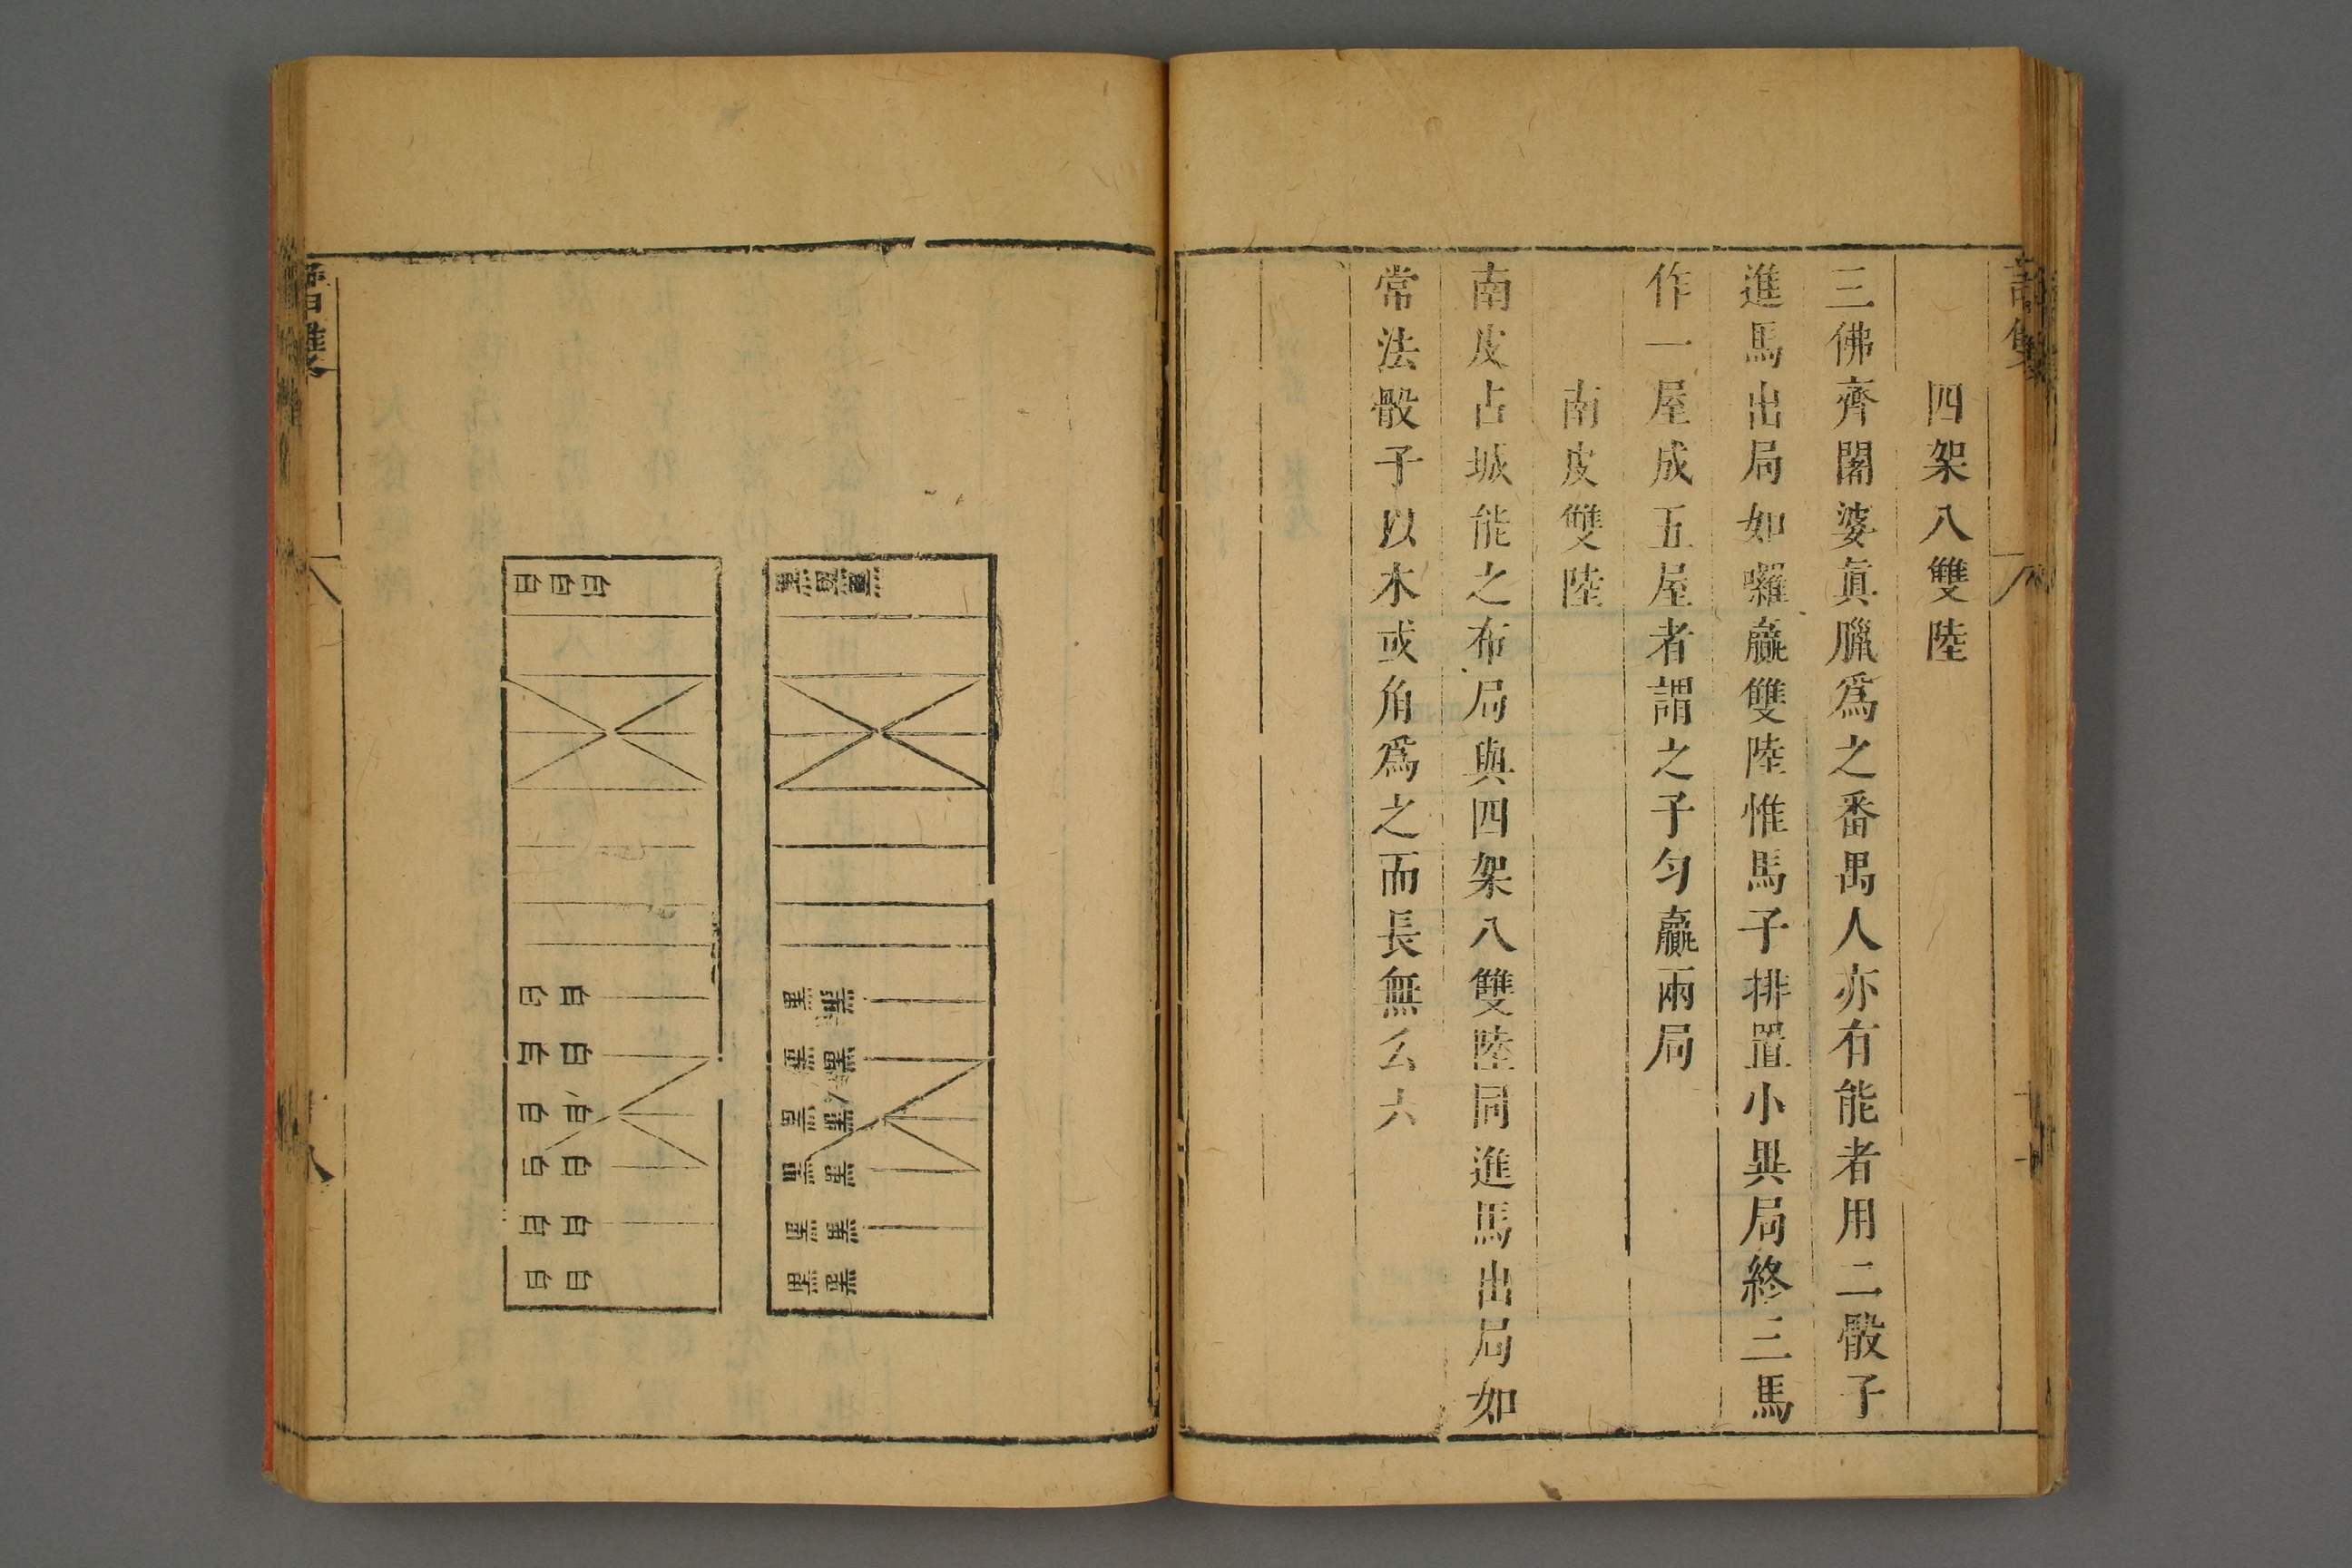 四架八雙陸
三佛齊闍婆眞臘爲之番禺人亦有能者用二骰子
進馬出局如囉贏雙陸惟馬子排置小異局終三馬
作一屋成五屋者謂之子勻贏兩局
南皮雙陸
南皮占城能之布局與四架八雙陸同進馬出局如
常法骰子以木或角爲之而長無么六
黑黑黑
黑黑
黑黑
黑黑
黑黑
黑黑
黑黑
白白白
白白
白白
白白
白白
白白
白白